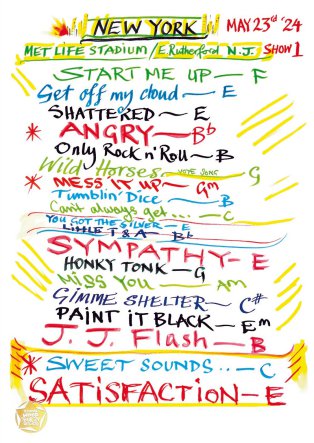 NEW YORK MAY 23rd '24
MET LIFE STADIUM / E. Rutherford N.J. SHOW 1
START ME UP — F
Get off my cloud — E
SHATTERED — E
* ANGRY — Bb
Only Rock n' Roll — B
Wild Horses VOTE SONG G
* MESS IT UP — Gm
Tumblin' Dice — B
Can't always get.... — C
YOU GOT THE SILVER — E
LITTLE T & A — Bb
SYMPATHY — E
HONKY TONK — G
MISS YOU — Am
GIMME SHELTER — C#
PAINT IT BLACK — Em
J. J. Flash — B
* SWEET SOUNDS .. — C
SATISFACTION — E